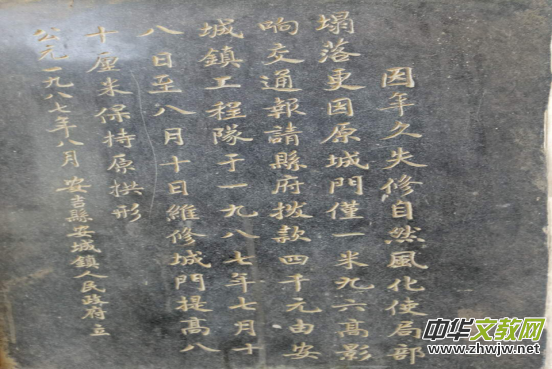 因年久失修自然風化使局部
塌落更因原城門僅一米九六高影
响交通報請縣府拨款四千元由安
城鎮工程隊于一九八七年七月十
八日至八月十日維修城門提高八
十厘米保持原拱形
公元一九八七年八月 安吉縣安城鎮人民政府立
中华文教网
www.zhwjw.net